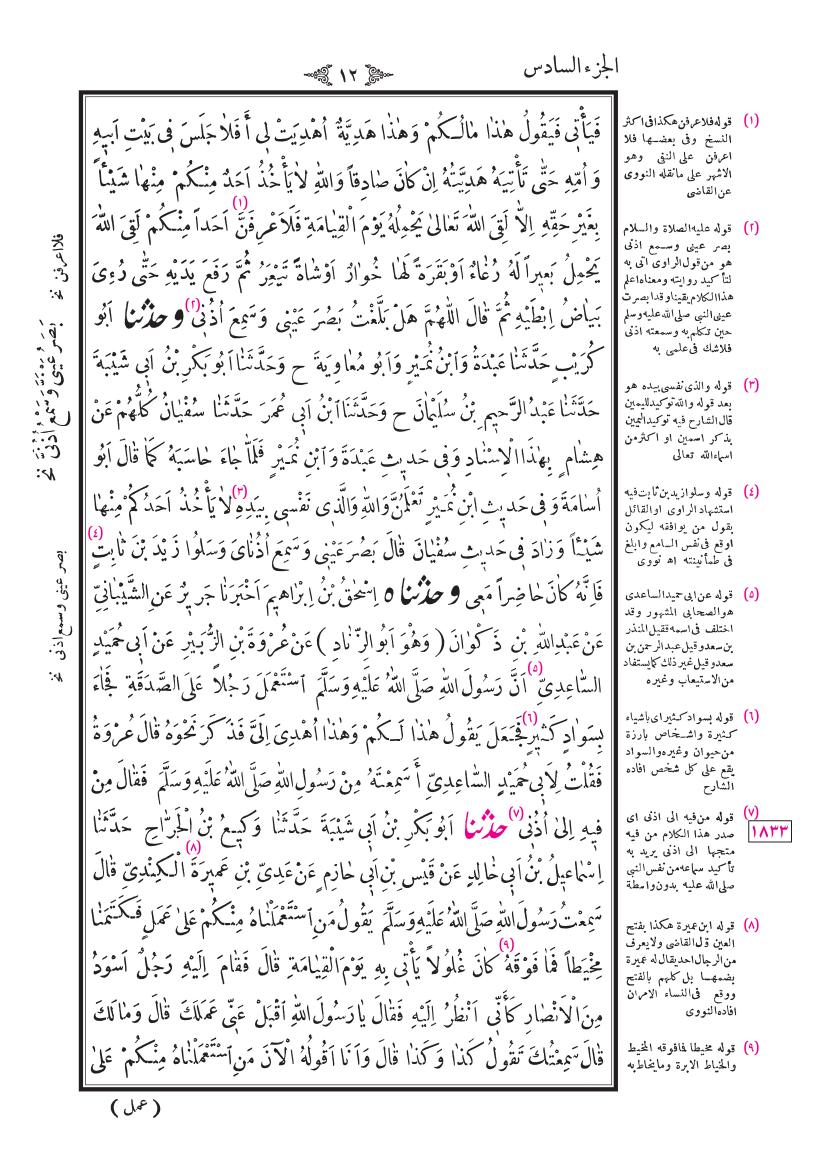 الجزء السادس
١٢
فَيَأْتِي فَيَقُولُ هٰذَا مَالُكُمْ وَهٰذَا هَدِيَّةٌ اُهْدِيَتْ لِي أَفَلاَ جَلَسَ فِي بَيْتِ اَبِيهِ
وَاُمِّهِ حَتَّى تَأْتِيَهُ هَدِيَّتُهُ اِنْ كَانَ صَادِقاً وَاللهِ لاَ يَأْخُذُ اَحَدٌ مِنْكُمْ مِنْهَا شَيْئاً
بِغَيْرِ حَقِّهِ اِلاَّ لَقِيَ اللهَ تَعَالىٰ يَحْمِلُهُ يَوْمَ الْقِيَامَةِ فَلَاَعْرِفَنَّ (١) اَحَداً مِنْكُمْ لَقِيَ اللهَ
يَحْمِلُ بَعِيراً لَهُ رُغَاءٌ اَوْ بَقَرَةً لَهَا خُوَارٌ اَوْ شَاةً تَيْعِرُ ثُمَّ رَفَعَ يَدَيْهِ حَتَّى رُءِيَ
بَيَاضُ اِبْطَيْهِ ثُمَّ قَالَ اللّٰهُمَّ هَلْ بَلَّغْتُ بَصُرَ عَيْنِي وَسَمِعَ اُذُنِي (٢) وحدثنا اَبُو
كُرَيْبٍ حَدَّثَنَا عَبْدَةُ وَابْنُ نُمَيْرٍ وَاَبُو مُعَاوِيَةَ ح وَحَدَّثَنَا اَبُو بَكْرِ بْنُ اَبِي شَيْبَةَ
حَدَّثَنَا عَبْدُ الرَّحِيمِ بْنُ سُلَيْمَانَ ح وَحَدَّثَنَا ابْنُ اَبِي عُمَرَ حَدَّثَنَا سُفْيَانُ كُلُّهُمْ عَنْ
هِشَامٍ بِهٰذَا الْاِسْنَادِ وَفِي حَدِيثِ عَبْدَةَ وَابْنِ نُمَيْرٍ فَلَمَّا جَاءَ حَاسَبَهُ كَمَا قَالَ اَبُو
اُسَامَةَ وَفِي حَدِيثِ ابْنِ نُمَيْرٍ تَعْلَمُنَّ وَاللهِ وَالَّذِي نَفْسِي بِيَدِهِ (٣) لاَ يَأْخُذُ اَحَدُكُمْ مِنْهَا
شَيْئاً وَزَادَ فِي حَدِيثِ سُفْيَانَ قَالَ بَصُرَ عَيْنِي وَسَمِعَ اُذُنَايَ وَسَلُوا زَيْدَ بْنَ ثَابِتٍ (٤)
فَاِنَّهُ كَانَ حَاضِراً مَعِي وحدثناه اِسْحٰقُ بْنُ اِبْرَاهِيمَ اَخْبَرَنَا جَرِيرٌ عَنِ الشَّيْبَانِيِّ
عَنْ عَبْدِ اللهِ بْنِ ذَكْوَانَ (وَهُوَ اَبُو الزِّنَادِ) عَنْ عُرْوَةَ بْنِ الزُّبَيْرِ عَنْ اَبِي حُمَيْدٍ
السَّاعِدِيِّ (٥) اَنَّ رَسُولَ اللهِ صَلَّى اللهُ عَلَيْهِ وَسَلَّمَ اسْتَعْمَلَ رَجُلاً عَلَى الصَّدَقَةِ فَجَاءَ
بِسَوَادٍ كَثِيرٍ (٦) فَجَعَلَ يَقُولُ هٰذَا لَكُمْ وَهٰذَا اُهْدِيَ اِلَيَّ فَذَكَرَ نَحْوَهُ قَالَ عُرْوَةُ
فَقُلْتُ لِاَبِي حُمَيْدٍ السَّاعِدِيِّ أَسَمِعْتَهُ مِنْ رَسُولِ اللهِ صَلَّى اللهُ عَلَيْهِ وَسَلَّمَ فَقَالَ مِنْ
فِيهِ اِلىٰ اُذُنِي (٧) حدثنا اَبُو بَكْرِ بْنُ اَبِي شَيْبَةَ حَدَّثَنَا وَكِيعُ بْنُ الْجَرَّاحِ حَدَّثَنَا
اِسْمَاعِيلُ بْنُ اَبِي خَالِدٍ عَنْ قَيْسِ بْنِ اَبِي حَازِمٍ عَنْ عَدِيِّ بْنِ عَمِيرَةَ (٨) الْكِنْدِيِّ قَالَ
سَمِعْتُ رَسُولَ اللهِ صَلَّى اللهُ عَلَيْهِ وَسَلَّمَ يَقُولُ مَنِ اسْتَعْمَلْنَاهُ مِنْكُمْ عَلىٰ عَمَلٍ فَكَتَمَنَا
مِخْيَطاً فَمَا فَوْقَهُ (٩) كَانَ غُلُولاً يَأْتِي بِهِ يَوْمَ الْقِيَامَةِ قَالَ فَقَامَ اِلَيْهِ رَجُلٌ اَسْوَدُ
مِنَ الْاَنْصَارِ كَأَنِّي اَنْظُرُ اِلَيْهِ فَقَالَ يَا رَسُولَ اللهِ اقْبَلْ عَنِّي عَمَلَكَ قَالَ وَمَا لَكَ
قَالَ سَمِعْتُكَ تَقُولُ كَذَا وَكَذَا قَالَ وَاَنَا اَقُولُهُ الْآنَ مَنِ اسْتَعْمَلْنَاهُ مِنْكُمْ عَلىٰ
(عمل)
(١) قوله فلاعرفن هكذا فى اكثر
النسخ وفى بعضها فلا
اعرفن على النفى وهو
الاشهر على مانقله النووى
عن القاضى
(٢) قوله عليه الصلاة والسلام
بصر عينى وسمع اذنى
هو من قول الراوى اتى به
لتأكيد روايته ومعناه اعلم
هذا الكلام يقينا وقد ابصرت
عينى النبى صلى الله عليه وسلم
حين تكلم به وسمعته اذنى
فلاشك فى علمى به
(٣) قوله والذى نفسى بيده هو
بعد قوله والله توكيد لليمين
قال الشارح فيه توكيد اليمين
بذكر اسمين او اكثر من
اسماء الله تعالى
(٤) قوله وسلوا زيد بن ثابت فيه
استشهاد الراوى او القائل
بقول من يوافقه ليكون
اوقع فى نفس السامع وابلغ
فى طمأنينته اه نووى
(٥) قوله عن ابى حميد الساعدى
هو الصحابى المشهور وقد
اختلف فى اسمه فقيل المنذر
بن سعد وقيل عبد الرحمن بن
سعد وقيل غير ذلك كما يستفاد
من الاستيعاب وغيره
(٦) قوله بسواد كثير اى باشياء
كثيرة واشخاص بارزة
من حيوان وغيره والسواد
يقع على كل شخص افاده
الشارح
(٧) قوله من فيه الى اذنى اى
صدر هذا الكلام من فيه
متجها الى اذنى يريد به
تأكيد سماعه من نفس النبى
صلى الله عليه بدون واسطة
١٨٣٣
(٨) قوله ابن عميرة هكذا بفتح
العين قال القاضى ولايعرف
من الرجال احد يقال له عميرة
بضمها بل كلهم بالفتح
ووقع فى النساء الامران
افاده النووى
(٩) قوله مخيطا فما فوقه المخيط
والخياط الابرة وما يخاط به
فلا اعرفن نخ
بصر عينى وسمع اذنى نخ
بصر عينى وسمع اذنى نخ